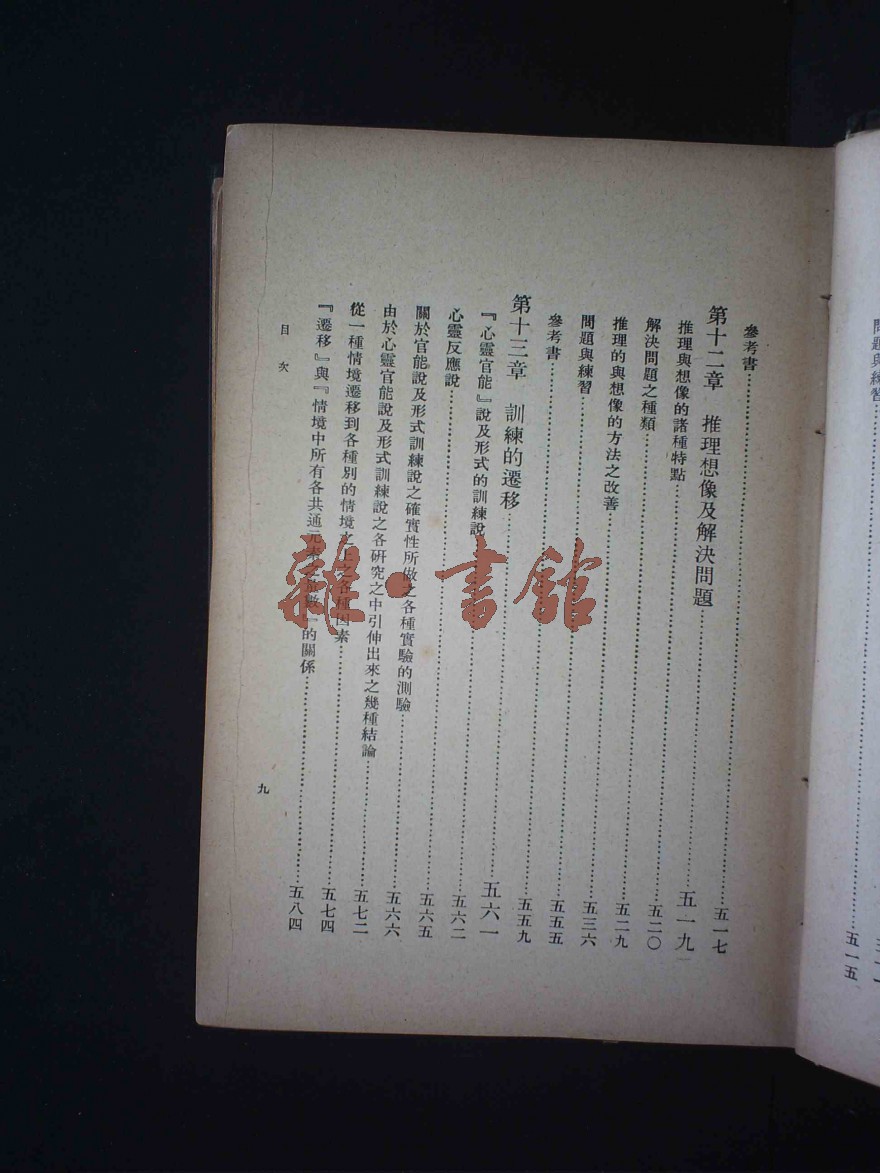 問題與練習……五一五
參考書……五一七
第十二章 推理想像及解決問題……五一九
推理與想像的諸種特點……五二〇
解決問題之種類……五二九
推理的與想像的方法之改善……五三六
問題與練習……五五五
參考書……五五九
第十三章 訓練的遷移……五六一
『心靈官能』說及形式的訓練說……五六二
心靈反應說……五六五
關於官能說及形式訓練說之確實性所做之各種實驗的測驗……五六六
由於心靈官能說及形式訓練說之各研究之中引伸出來之幾種結論……五七二
從一種情境遷移到各種別的情境之上之各種因素……五七四
『遷移』與『情境中所有各共通元素之數』的關係……五八四
目次
九
雜·書館